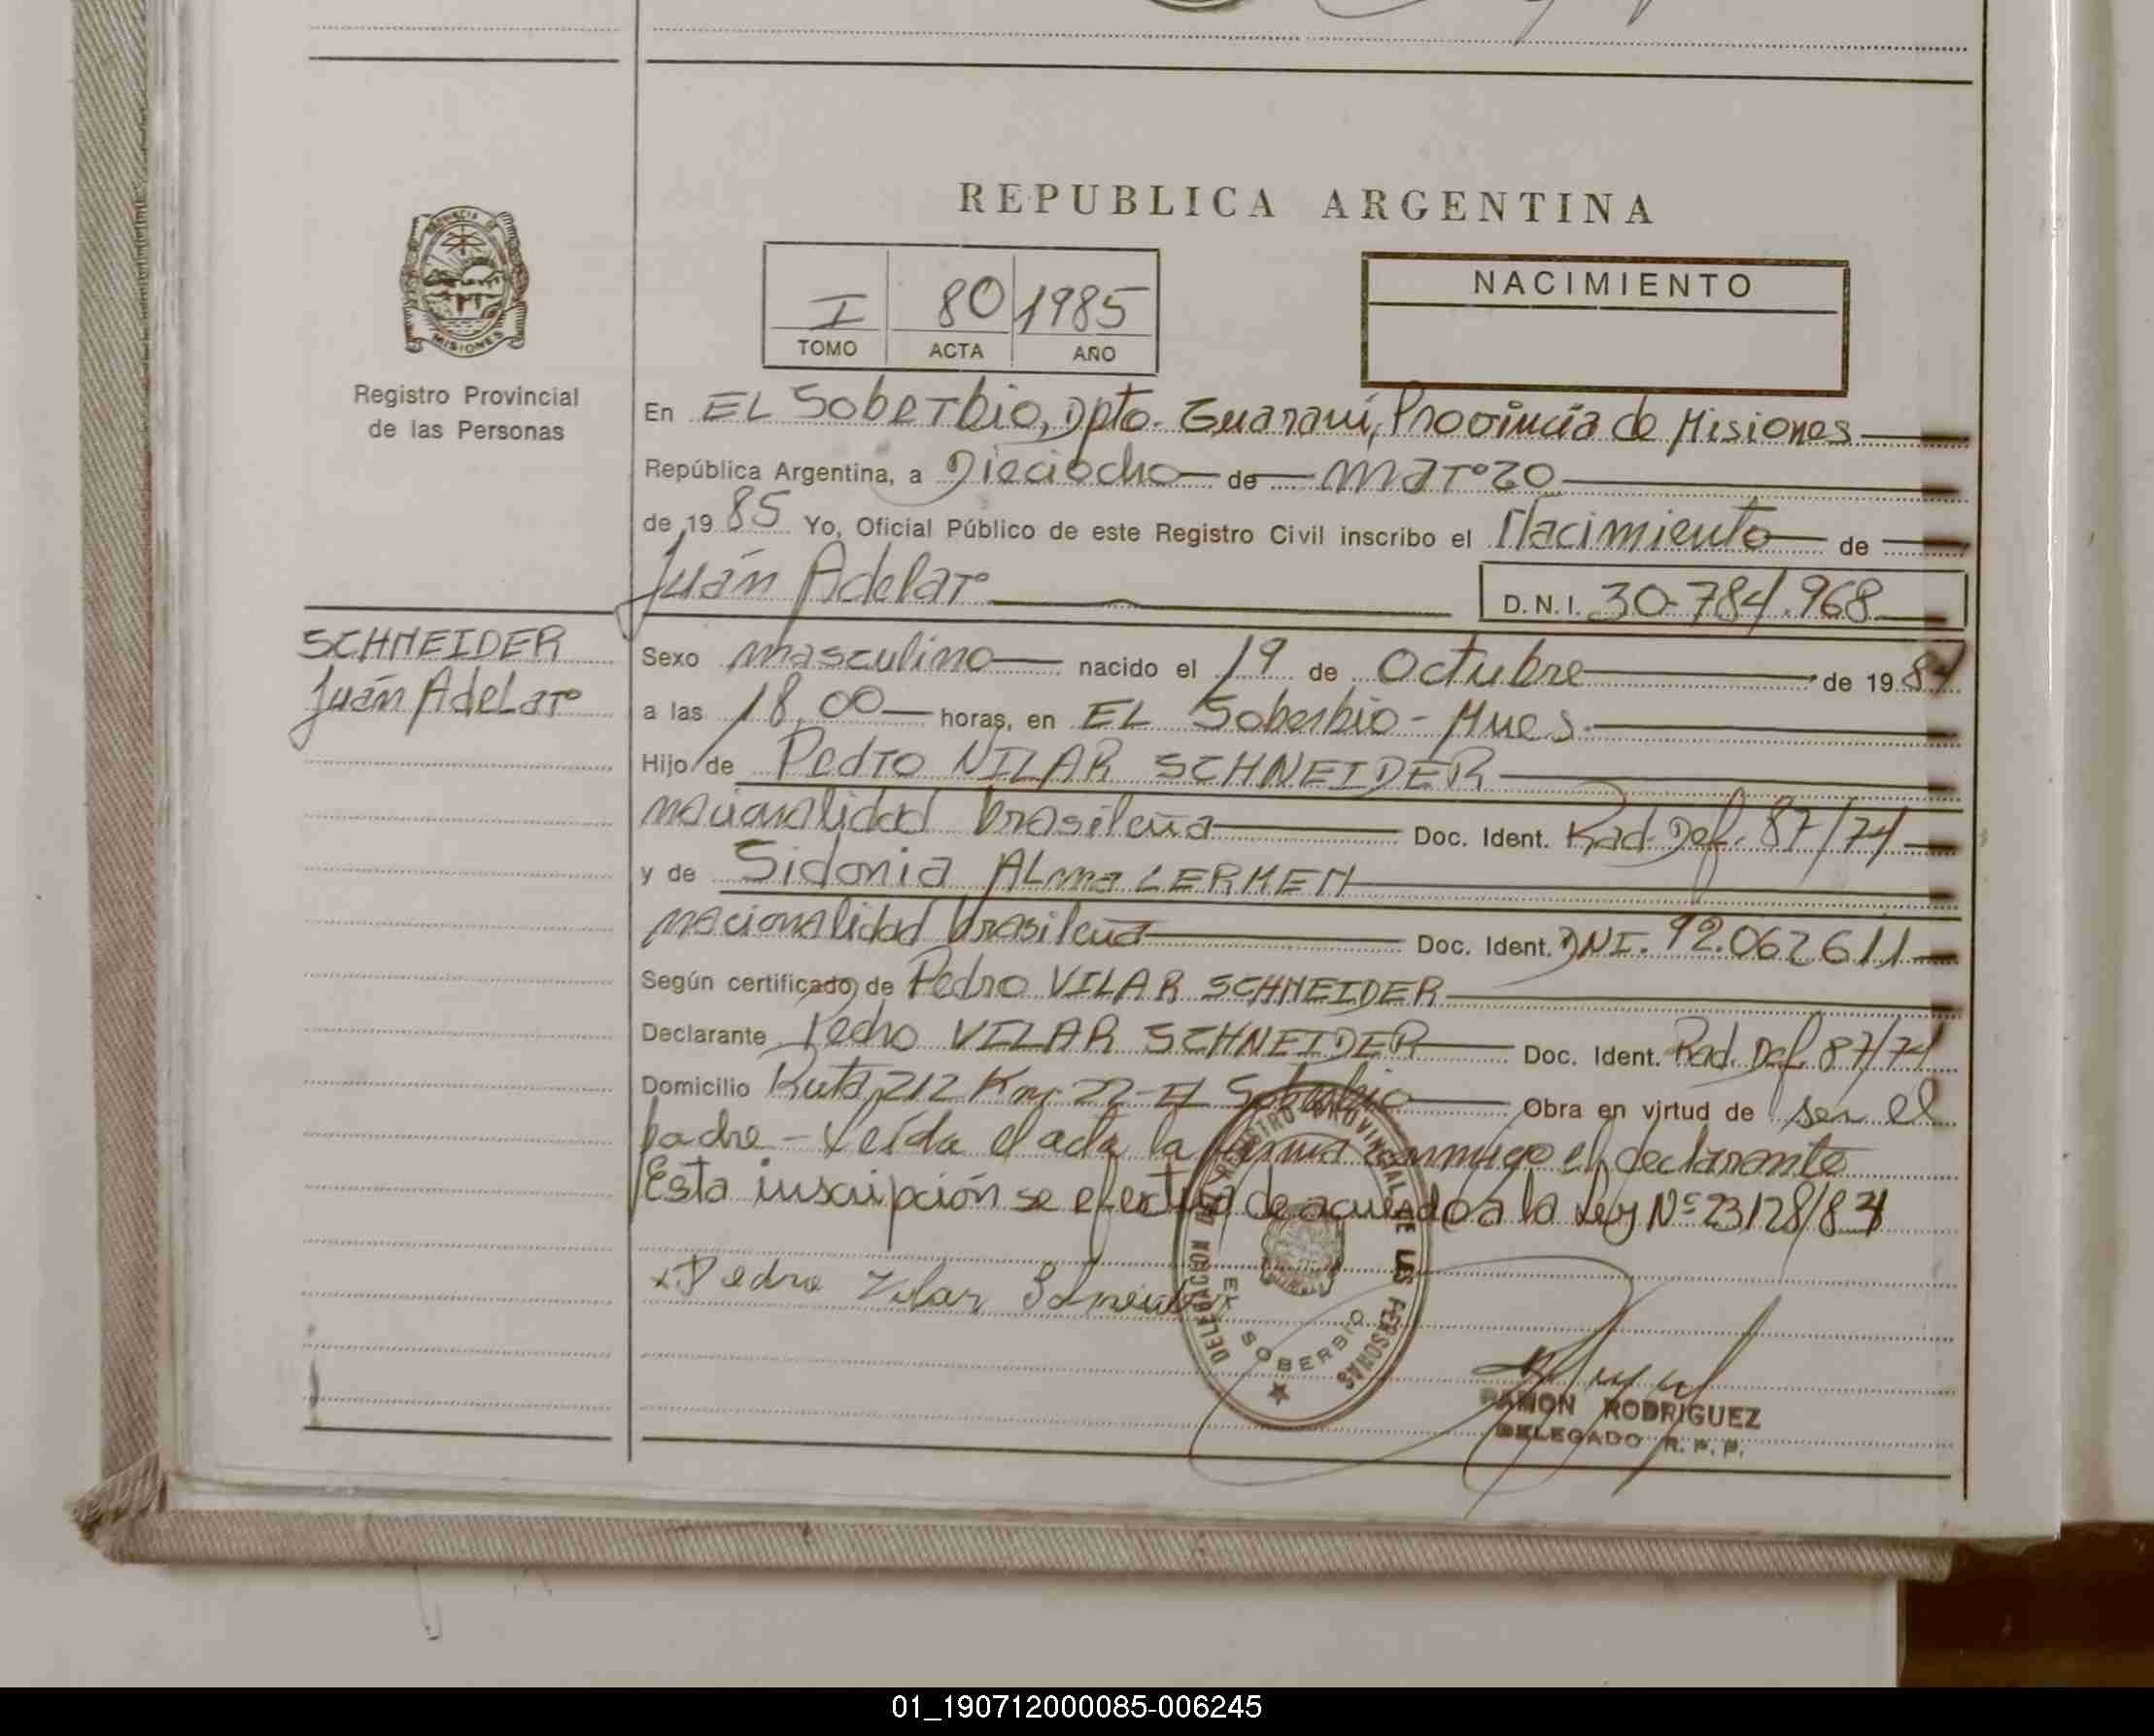 REPUBLICA ARGENTINA
PROVINCIA
MISIONES
Registro Provincial
de las Personas
I 80 1985
TOMO ACTA AÑO
NACIMIENTO
En EL Soberbio, Dpto. Guaraní, Provincia de Misiones
República Argentina, a Dieciocho de marzo
de 1985 Yo, Oficial Público de este Registro Civil inscribo el Nacimiento de
Juán Adelar
D.N.I. 30.784.968
SCHNEIDER
Juán Adelar
Sexo masculino nacido el 19 de Octubre de 1984
a las 18,00 horas, en EL Soberbio - Mnes.
Hijo de Pedro VILAR SCHNEIDER
nacionalidad brasileña Doc. Ident. Rad. Def. 87/74
y de Sidonia ALma LERMEN
nacionalidad brasileña Doc. Ident. DNI. 92.062611
Según certificado de Pedro VILAR SCHNEIDER
Declarante Pedro VILAR SCHNEIDER Doc. Ident. Rad. Def. 87/74
Domicilio Ruta 212 Km 22 - El Soberbio Obra en virtud de ser el
padre - Leída el acta la firma conmigo el declarante
Esta inscripción se efectua de acuerdo a la Ley Nº 23128/84
x Pedro Vilar Schneider
DELEGACION DEL REGISTRO PROVINCIAL DE LAS PERSONAS
EL SOBERBIO
RAMON RODRIGUEZ
DELEGADO R. P. P.
01_190712000085-006245